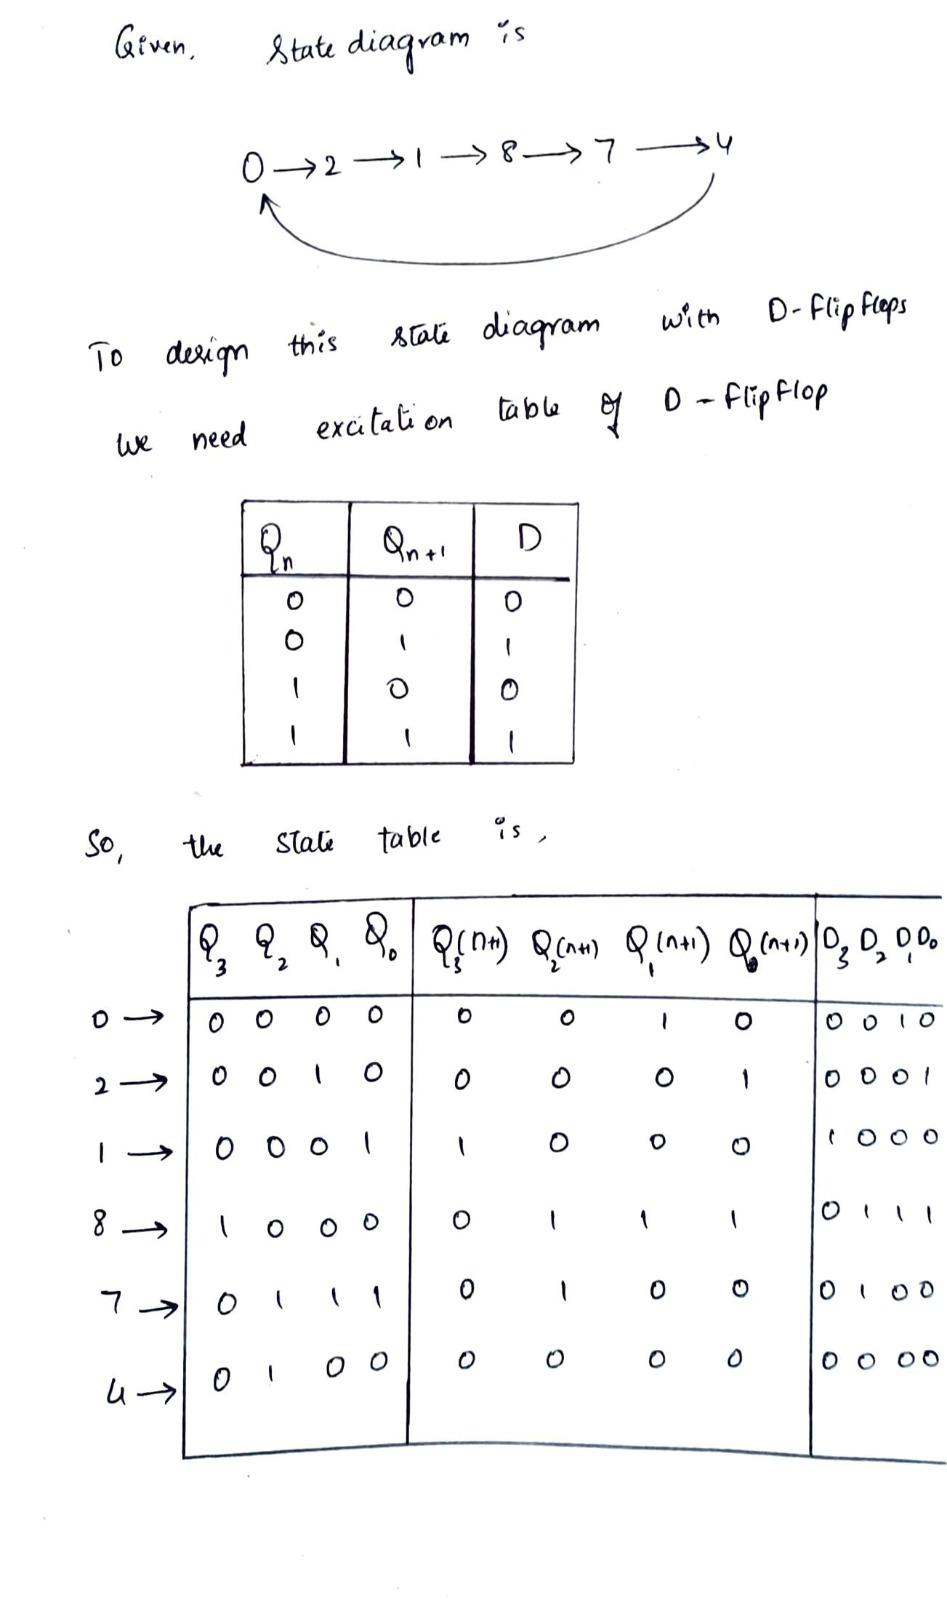 Given, State diagram is
0 → 2 → 1 → 8 → 7 → 4
To design this state diagram with D-flipflops
we need excitation table of D-flipflop
Qn Qn+1 D
0 0 0
0 1 1
1 0 0
1 1 1
So, the state table is,
Q3 Q2 Q1 Q0 Q3(n+1) Q2(n+1) Q1(n+1) Q0(n+1) D3 D2 D1 D0
0 → 0 0 0 0 0 0 1 0 0 0 1 0
2 → 0 0 1 0 0 0 0 1 0 0 0 1
1 → 0 0 0 1 1 0 0 0 1 0 0 0
8 → 1 0 0 0 0 1 1 1 0 1 1 1
7 → 0 1 1 1 0 1 0 0 0 1 0 0
4 → 0 1 0 0 0 0 0 0 0 0 0 0